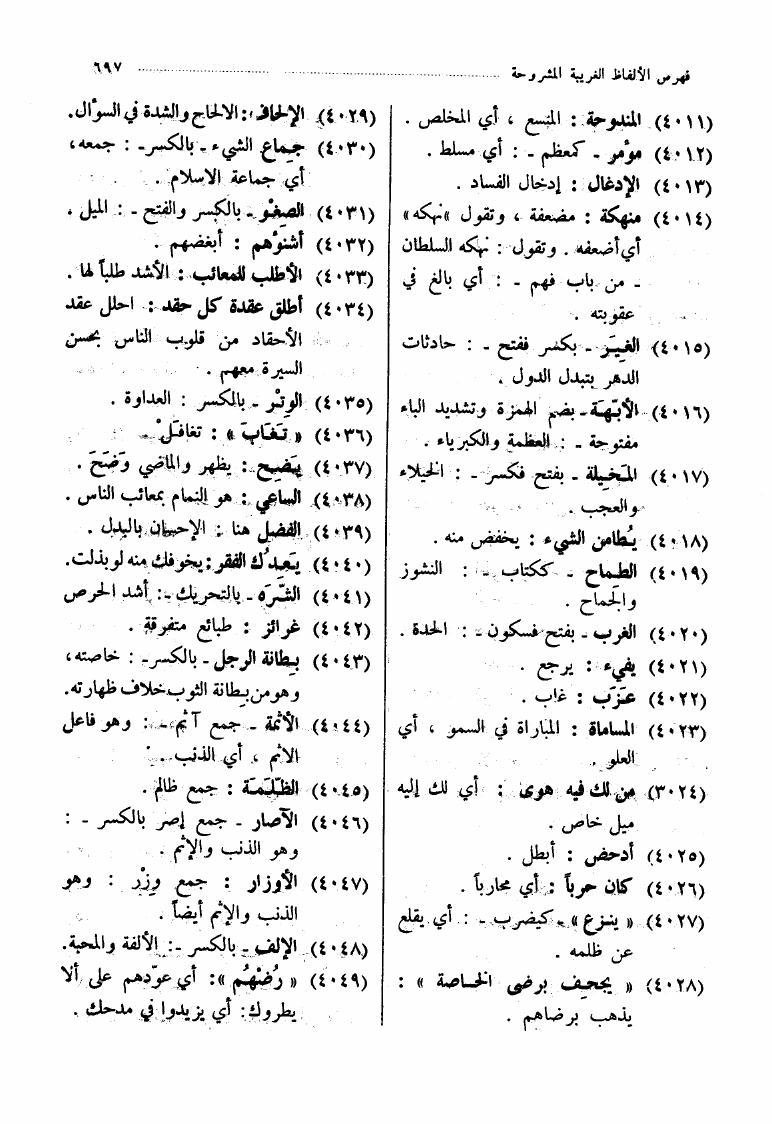 فهرس الألفاظ الغريبة المشروحة ٦٩٧
(٤٠١١) المندوحة : المتسع ، أي المخلص .
(٤٠١٢) مؤمر - كمعظم - : أي مسلط .
(٤٠١٣) الإدغال : إدخال الفساد .
(٤٠١٤) منهكة : مضعفة ، وتقول «نهكه»
أي أضعفه . وتقول : نهكه السلطان
- من باب فهم - : أي بالغ في
عقوبته .
(٤٠١٥) الغِيَر - بكسر ففتح - : حادثات
الدهر بتبدل الدول .
(٤٠١٦) الأبّهة - بضم الهمزة وتشديد الباء
مفتوحة - : العظمة والكبرياء .
(٤٠١٧) المَخيلة - بفتح فكسر - : الخيلاء
والعجب .
(٤٠١٨) يُطامن الشيء : يخفض منه .
(٤٠١٩) الطِماح - ككتاب - : النشوز
والجماح .
(٤٠٢٠) الغرب - بفتح فسكون - : الحدة .
(٤٠٢١) يفيء : يرجع .
(٤٠٢٢) عَزَب : غاب .
(٤٠٢٣) المساماة : المباراة في السمو ، أي
العلو .
(٣٠٢٤) من لك فيه هوى : أي لك إليه
ميل خاص .
(٤٠٢٥) أدحض : أبطل .
(٤٠٢٦) كان حرباً : أي محارباً .
(٤٠٢٧) « ينزع » - كيضرب - : أي يقلع
عن ظلمه .
(٤٠٢٨) « يجحف برضى الخاصة » :
يذهب برضاهم .
(٤٠٢٩) الإلحاف : الالحاح والشدة في السؤال.
(٤٠٣٠) جِماع الشيء - بالكسر - : جمعه،
أي جماعة الاسلام .
(٤٠٣١) الصِغْو - بالكسر والفتح - : الميل .
(٤٠٣٢) أشنؤهم : أبغضهم .
(٤٠٣٣) الأطلب للمعائب : الأشد طلباً لها .
(٤٠٣٤) أطلق عقدة كل حقد : احلل عقد
الأحقاد من قلوب الناس بحسن
السيرة معهم .
(٤٠٣٥) الوِتْر - بالكسر : العداوة .
(٤٠٣٦) « تَغَابَ » : تغافَلْ .
(٤٠٣٧) يَضِح : يظهر والماضي وَضَحَ .
(٤٠٣٨) الساعي : هو النمام بمعائب الناس .
(٤٠٣٩) الفضل هنا : الإحسان بالبذل .
(٤٠٤٠) يَعِدُك الفقر : يخوفك منه لو بذلت.
(٤٠٤١) الشَّرَه - بالتحريك - : أشد الحرص
(٤٠٤٢) غرائز : طبائع متفرقة .
(٤٠٤٣) بِطانة الرجل - بالكسر - : خاصته،
وهو من بِطانة الثوب خلاف ظهارته.
(٤٠٤٤) الأثمة - جمع آثم - : وهو فاعل
الاثم ، أي الذنب .
(٤٠٤٥) الظَّلَمَة : جمع ظالم .
(٤٠٤٦) الآصار - جمع إصر بالكسر - :
وهو الذنب والإثم .
(٤٠٤٧) الأوزار : جمع وِزْر : وهو
الذنب والإثم أيضاً .
(٤٠٤٨) الإلف - بالكسر - : الألفة والمحبة.
(٤٠٤٩) « رُضْهُم » : أي عوّدهم على ألا
يطروك : أي يزيدوا في مدحك .